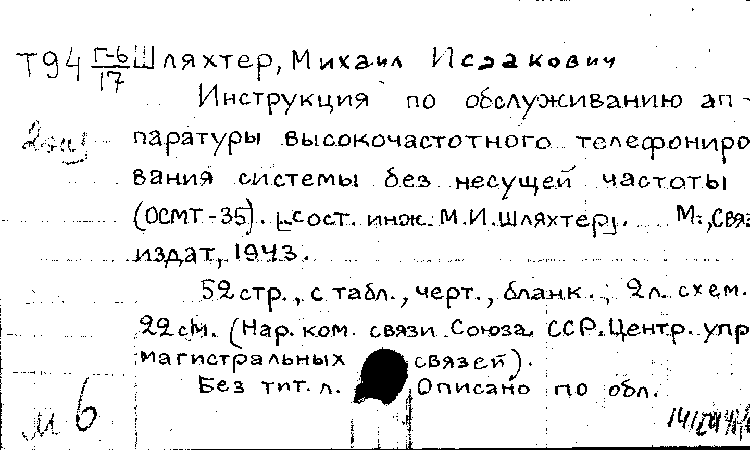 Т94 Г-6/17 Шляхтер, Михаил Исаакович
Инструкция по обслуживанию ап-
2экз
паратуры высокочастотного телефониро
вания системы без несущей частоты
(ОСМТ-35). [Сост. инж. М.И. Шляхтер]. М., Связ
издат, 1943.
52 стр., с табл., черт., бланк.; 2 л. схем.
22 см. (Нар. ком. связи Союза ССР. Центр. упр
магистральных связей).
Без тит. л. Описано по обл.
м 6